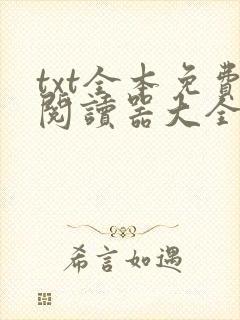 txt全本免費
閱讀器大全
希言如遇